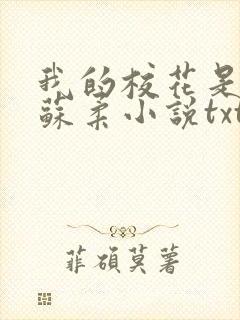 我的校花是
蘇柔小說txt
菲碩莫著